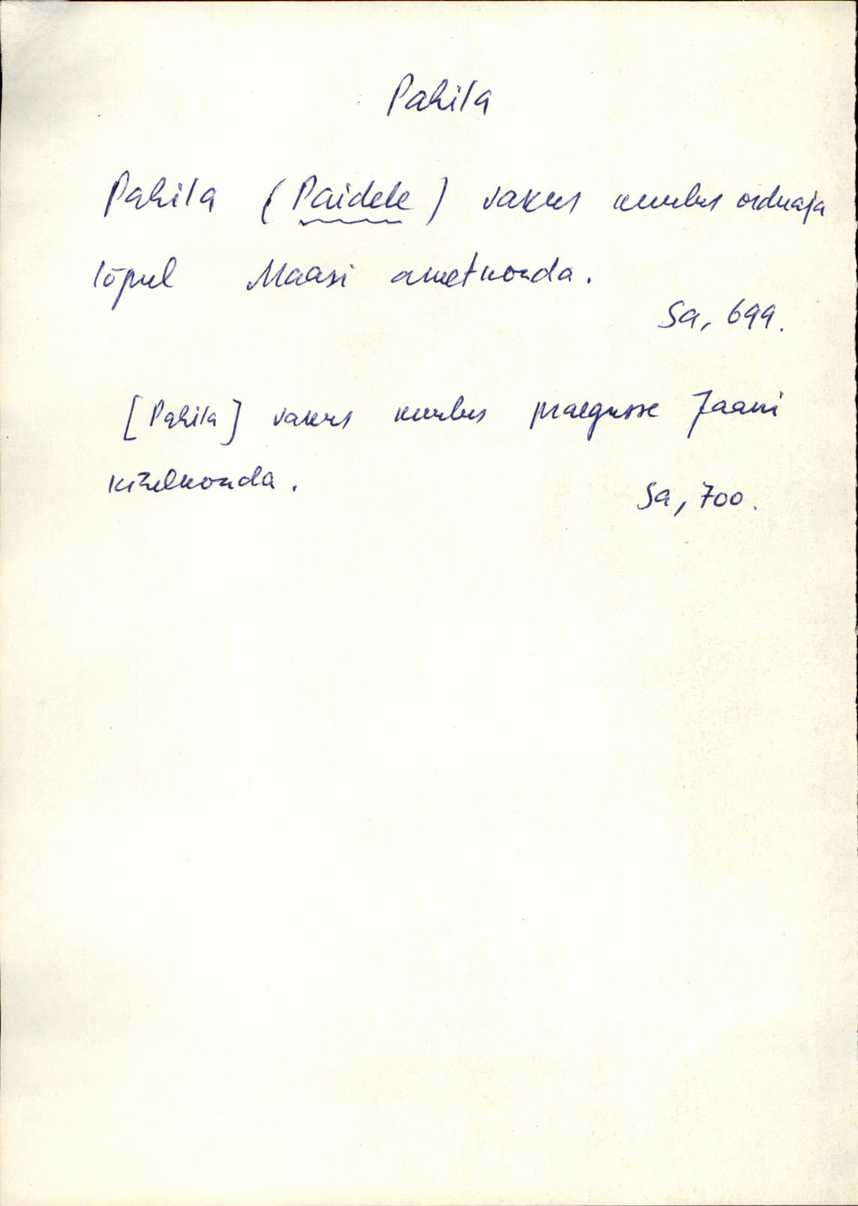 Pahila
Pahila (Paidele) vakus kuulus orduaja
lõpul Maasi ametkonda.
Sa, 699.
[Pahila] vakus kuulus praegusse Jaani
kihelkonda.
Sa, 700.